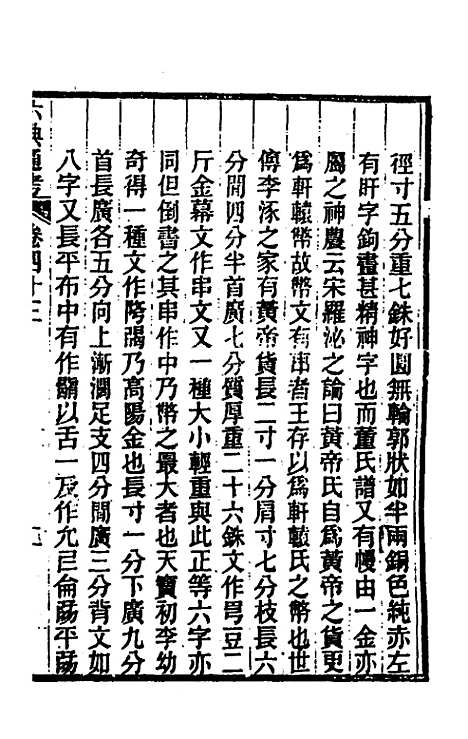 徑寸五分重七銖好圓無輪郭狀如半兩銅色純赤左
有盱字鉤畫甚精神字也而董氏譜又有幔由一金亦
屬之神農云宋羅泌之論曰黃帝氏自爲黃帝之貨更
爲軒轅幣故幣文有串者王存以爲軒轅氏之幣也世
傳李涿之家有黃帝貨長二寸一分肩寸七分枝長六
分間四分半首廣七分質厚重二十六銖文作𠔃豆二
斤金幕文作串文又一種大小輕重與此正等六字亦
同但倒書之其串作中乃幣之最大者也天寶初李幼
奇得一種文作㝿𨻶乃高陽金也長寸一分下廣九分
首長廣各五分向上漸濶足支四分間廣三分背文如
八字又長平布中有作𩪡以舌一反作允㠯侖昜平昜
六典通考 卷四十三